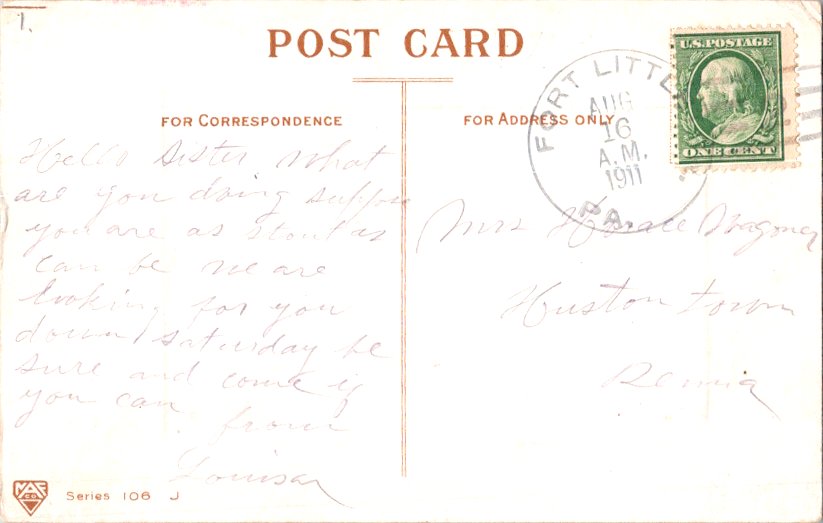 1.
POST CARD
FOR CORRESPONDENCE
FOR ADDRESS ONLY
U.S. POSTAGE
ONE CENT
FORT LITTLE
AUG
16
A.M.
1911
PA.
Hello Sister what
are you doing suppose
you are as stout as
can be we are
looking for you
down Saturday be
sure and come if
you can
from
Louisa
Mrs Horace Wagoner
Huston town
Penna
Series 106 J